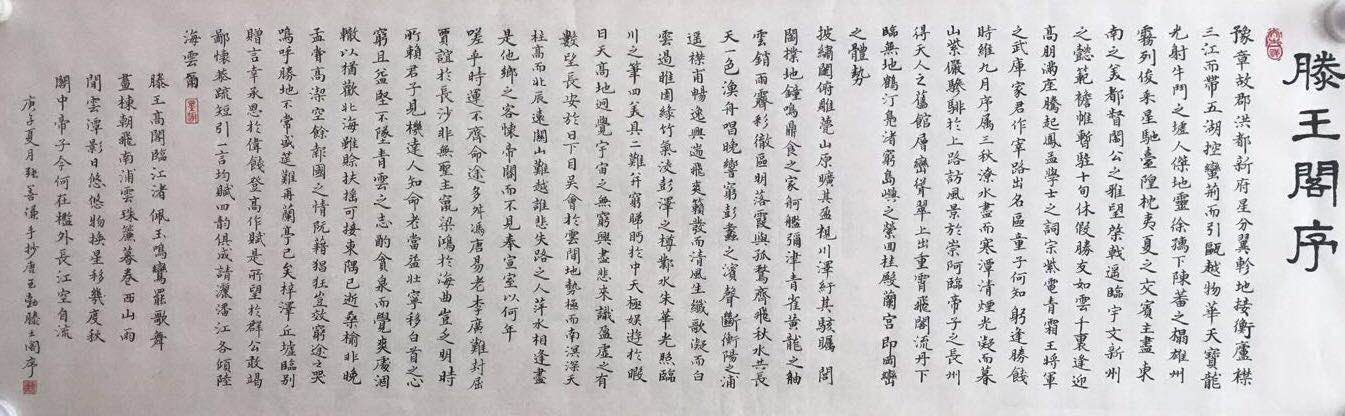 滕王閣序
豫章故郡洪都新府星分翼軫地接衡廬襟
三江而帶五湖控蠻荊而引甌越物華天寶龍
光射牛鬥之墟人傑地靈徐孺下陳蕃之榻雄州
霧列俊采星馳臺隍枕夷夏之交賓主盡東
南之美都督閻公之雅望棨戟遙臨宇文新州
之懿範襜帷暫駐十旬休假勝友如雲千裏逢迎
高朋滿座騰起鳳孟學士之詞宗紫電青霜王將軍
之武庫家君作宰路出名區童子何知躬逢勝餞
時維九月序属三秋潦水盡而寒潭清煙光凝而暮
山紫儼驂騑於上路訪風景於崇阿臨帝子之長州
得天人之舊館層巒聳翠上出重霄飛閣流丹下
臨無地鶴汀鳧渚窮島嶼之縈回桂殿蘭宮即岡巒
之體勢
披繡闥俯雕甍山原曠其盈視川澤紆其駭矚 閭
閻撲地鐘鳴鼎食之家舸艦彌津青雀黃龍之舳
雲銷雨霽彩徹區明落霞與孤鶩齊飛秋水共長
天一色漁舟唱晚響窮彭蠡之濱聲斷衡陽之浦
遙襟甫暢逸興遄飛爽籟發而清風生纖歌凝而白
雲遏睢園綠竹氣淩彭澤之樽鄴水朱華光照臨
川之筆四美具二難並窮睇眄於中天極娛遊於暇
日天高地迥覺宇宙之無窮興盡悲來識盈虛之有
數望長安於日下目吳會於雲間地勢極而南溟深天
柱高而北辰遠關山難越誰悲失路之人萍水相逢盡
是他鄉之客懷帝閽而不見奉宣室以何年
嗟乎時運不齊命途多舛馮唐易老李廣難封屈
賈誼於長沙非無聖主竄梁鴻於海曲豈乏明時
所賴君子見機達人知命老當益壯寧移白首之心
窮且益堅不墜青雲之志酌貪泉而覺爽處涸
轍以猶歡北海雖賒扶搖可接東隅已逝桑榆非晚
孟嘗高潔空餘報國之情阮籍猖狂豈效窮途之哭
嗚呼勝地不常盛筵難再蘭亭已矣梓澤丘墟臨別
贈言幸承恩於偉餞登高作賦是所望於群公敢竭
鄙懷恭疏短引一言均賦四韻俱成請灑潘江各傾陸
海雲爾
滕王高閣臨江渚佩玉鳴鸞罷歌舞
畫棟朝飛南浦雲珠簾暮卷西山雨
閒雲潭影日悠悠物換星移幾度秋
閣中帝子今何在檻外長江空自流
庚子夏月張善謙手抄唐王勃滕王閣序